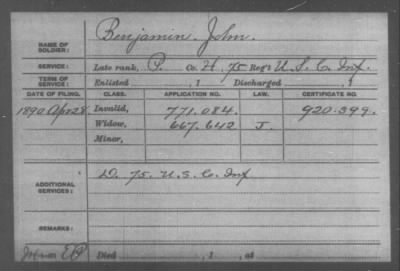 Benjamin, John.
NAME OF SOLDIER:
SERVICE: Late rank, P. Co. H, 75 Reg't U.S.C. Inf.
TERM OF SERVICE: Enlisted , 1 Discharged , 1
DATE OF FILING. CLASS. APPLICATION NO. LAW. CERTIFICATE NO.
1890 Apr 28 Invalid, 771.084. 920.399.
Widow, 667.642 J.
Minor,
ADDITIONAL SERVICES: D. 75. U.S.C. Inf
REMARKS:
Died , 1 , at